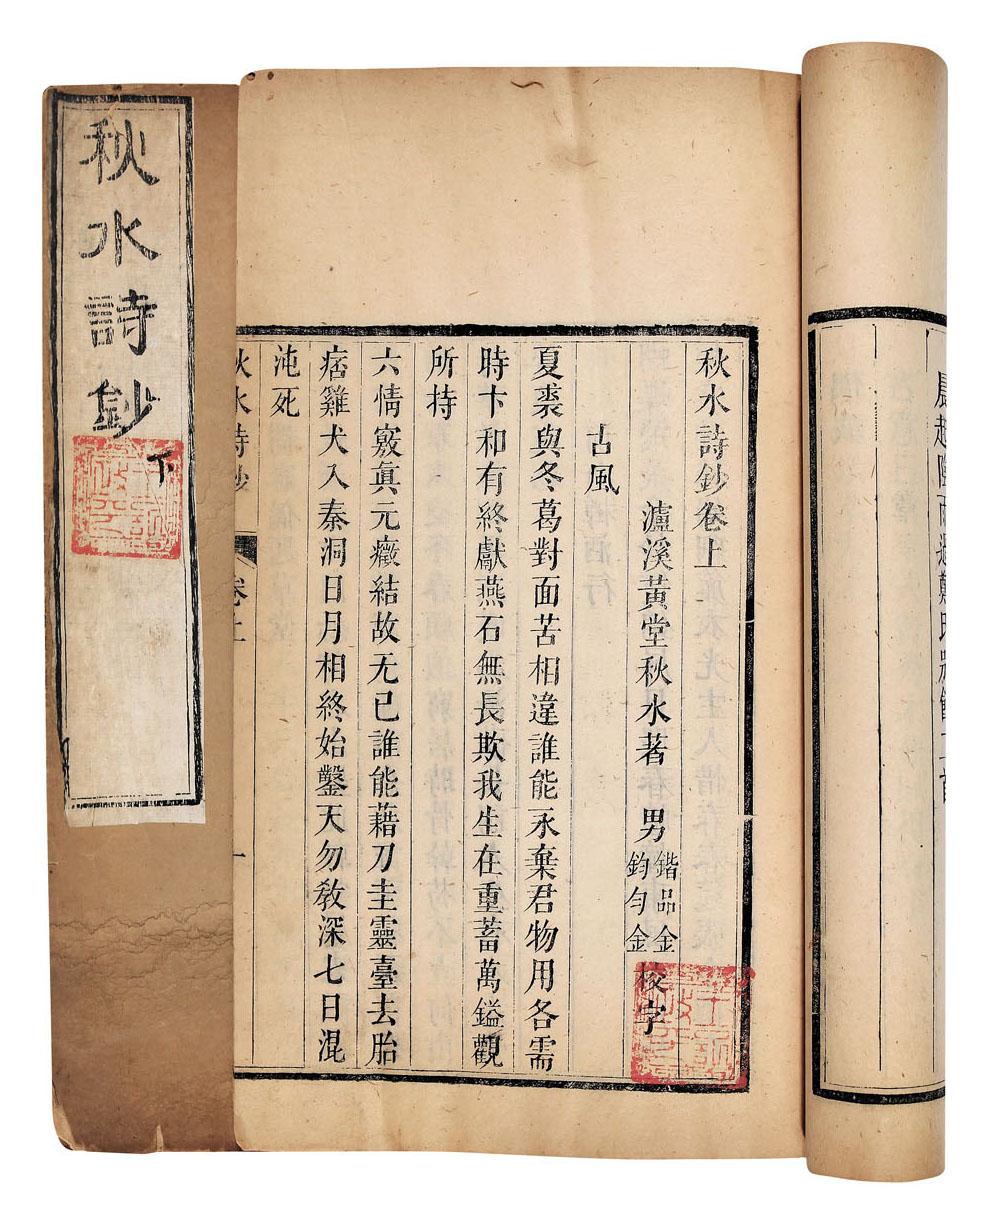 秋水詩鈔卷上
瀘溪黃堂秋水著 男鍇品金鈞勻金校字
古風
夏裘與冬葛對面苦相違誰能永棄君物用各需
時卞和有終獻燕石無長欺我生在重蓄萬鎰觀
所持
六情竅真元癥結故无已誰能藉刀圭靈臺去胎
痞雞犬入秦洞日月相終始鑿天勿教深七日混
沌死
秋水詩鈔 卷上 一
秋水詩鈔 下